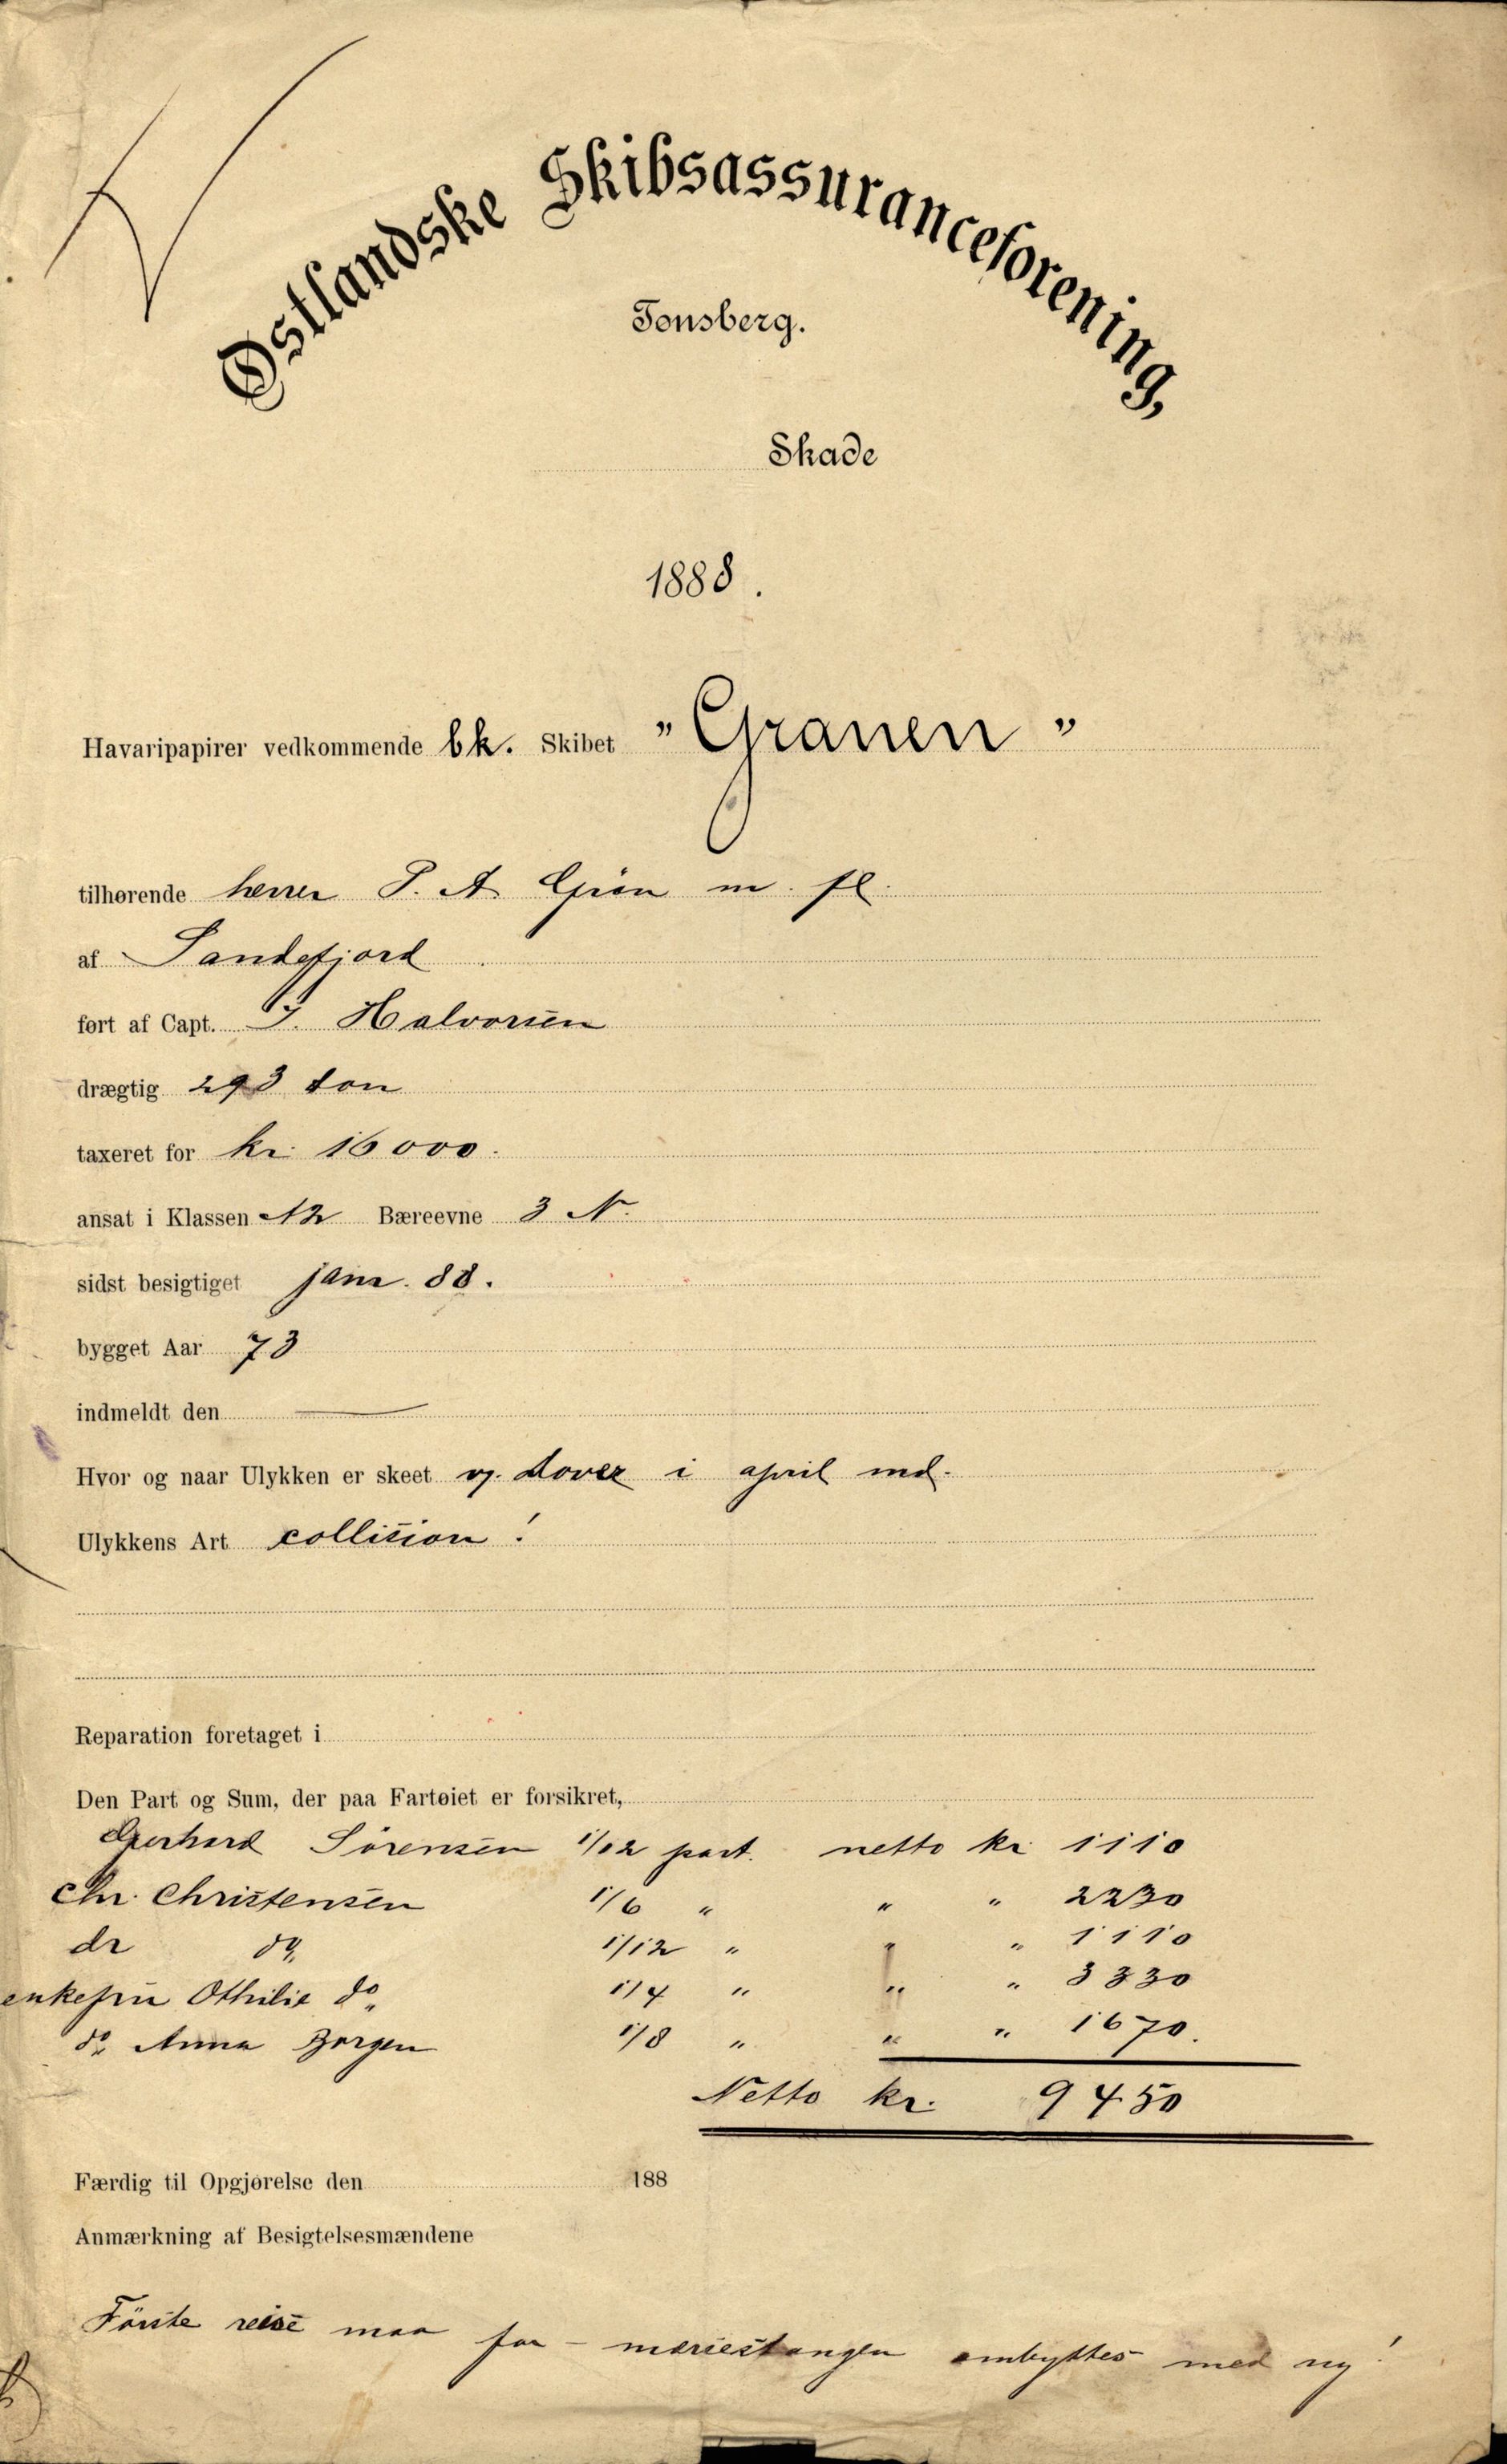 Østlandske Skibsassuranceforening,
Tonsberg.
Skade
1888.
Havaripapirer vedkommende bk. Skibet "Granen"
tilhørende herrer P. A. Grøn m. fl.
af Sandefjord
ført af Capt. J. Halvorsen
drægtig 293 ton
taxeret for kr. 16000.
ansat i Klassen A2 Bæreevne 3 N.
sidst besigtiget janr. 88.
bygget Aar 73
indmeldt den —
Hvor og naar Ulykken er skeet v. Dover i april md.
Ulykkens Art collision!
Reparation foretaget i
Den Part og Sum, der paa Fartøiet er forsikret,
Gerhard Sörensen 1/12 part. netto kr 1110
Chr. Christensen 1/6 " " " 2230
do do 1/12 " " " 1110
enkefru Othilie do 1/4 " " " 3330
do Anna Borgen 1/8 " " " 1670.
Netto kr. 9450
Færdig til Opgjørelse den 188
Anmærkning af Besigtelsesmændene
Förste reise maa for - mærsestangen ombyttes med ny!